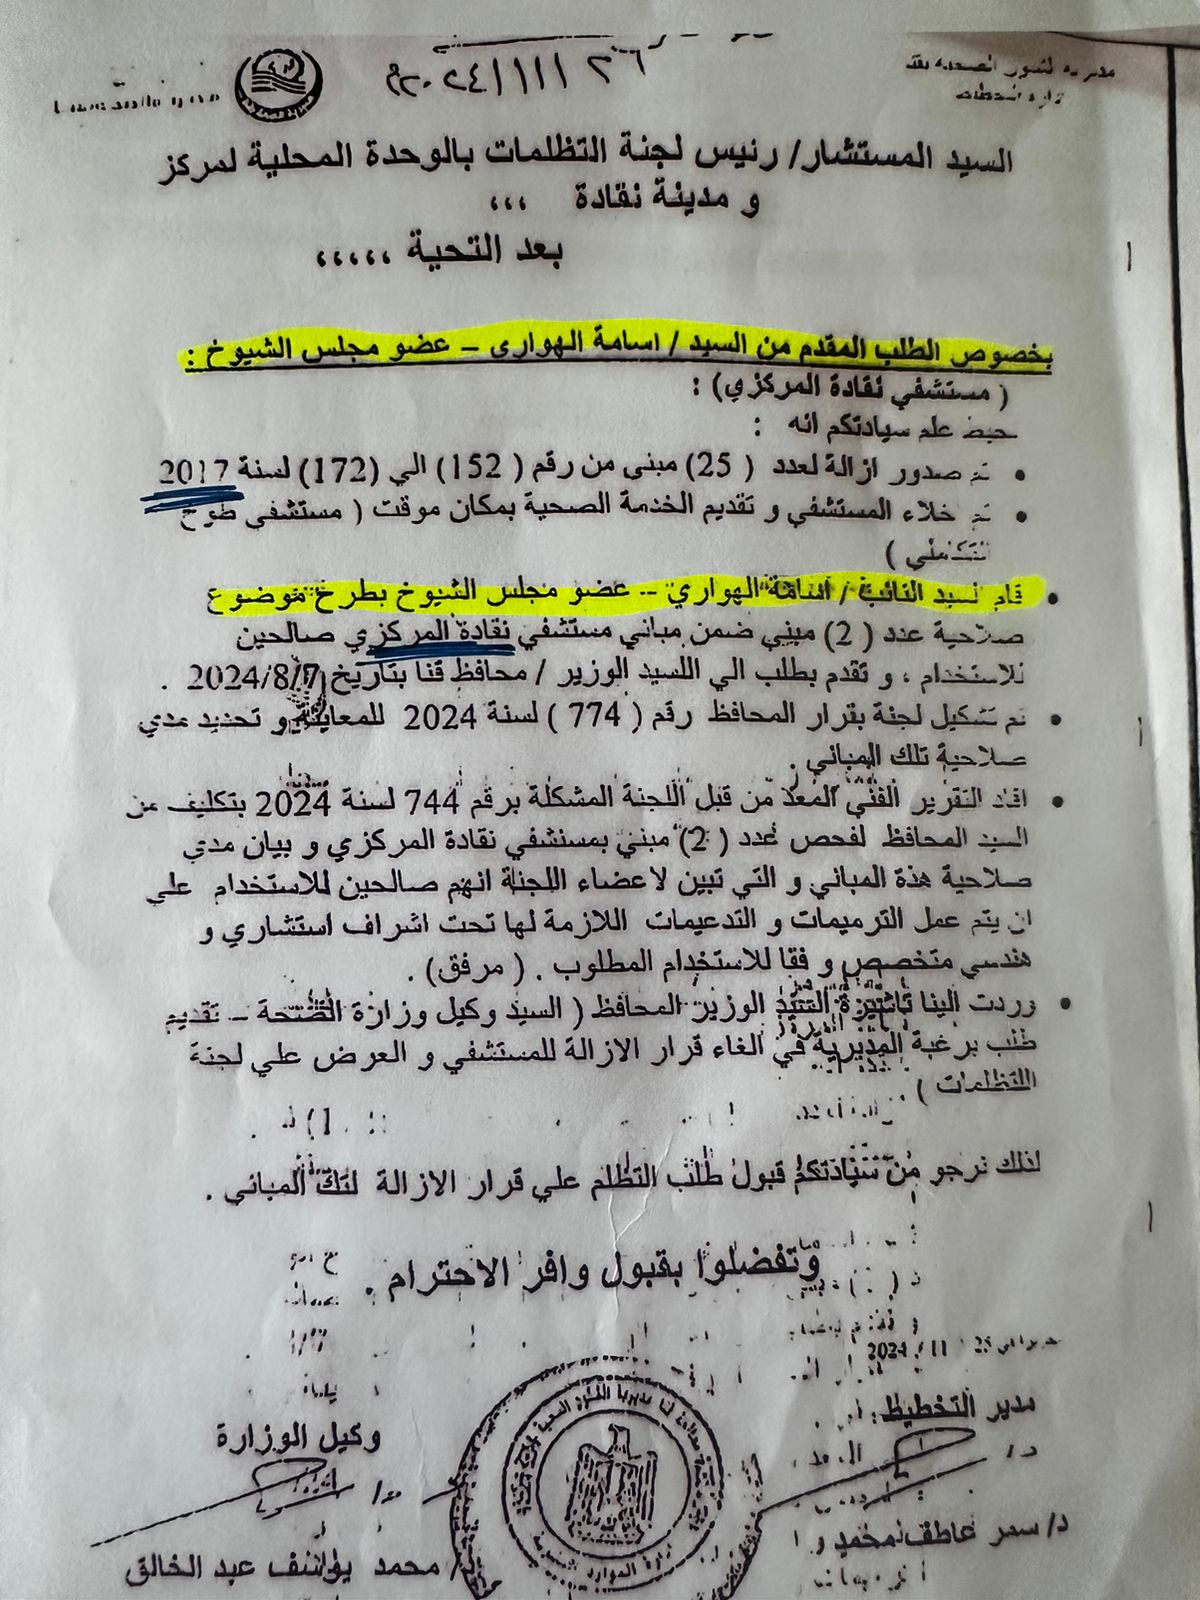 ٢٠٢٤/١١/٢٦
مديرية الشئون الصحية بقنا
إدارة التخطيط
السيد المستشار/ رئيس لجنة التظلمات بالوحدة المحلية لمركز
و مدينة نقادة ،،،
بعد التحية ،،،،،
بخصوص الطلب المقدم من السيد / اسامة الهوارى – عضو مجلس الشيوخ :
( مستشفي نقادة المركزي) :
نحيط علم سيادتكم انه :
• تم صدور ازالة لعدد ( 25) مبنى من رقم ( 152) الي (172) لسنة 2017
• تم خلاء المستشفي و تقديم الخدمة الصحية بمكان موقت ( مستشفى طوخ
التكاملي )
• قام السيد النائب / اسامة الهواري – عضو مجلس الشيوخ بطرح موضوع
صلاحية عدد ( 2) مبني ضمن مباني مستشفي نقادة المركزي صالحين
للاستخدام ، و تقدم بطلب الي اللسيد الوزير / محافظ قنا بتاريخ 2024/8/7 .
• تم تشكيل لجنة بقرار المحافظ رقم ( 774 ) لسنة 2024 للمعاينة و تحديد مدي
صلاحية تلك المباني .
• افاد التقرير الفني المعد من قبل اللجنة المشكلة برقم 744 لسنة 2024 بتكليف من
السيد المحافظ لفحص عدد ( 2) مبني بمستشفي نقادة المركزي و بيان مدي
صلاحية هذة المباني و التي تبين لاعضاء اللجنة انهم صالحين للاستخدام علي
ان يتم عمل الترميمات و التدعيمات اللازمة لها تحت اشراف استشاري و
هندسي متخصص و فقا للاستخدام المطلوب . ( مرفق) .
• وردت الينا تاشيرة السيد الوزير المحافظ ( السيد وكيل وزارة الصحة – تقديم
طلب برغبة المديرية في الغاء قرار الازالة للمستشفي و العرض علي لجنة
التظلمات )
لذلك نرجو من سيادتكم قبول طلب التظلم علي قرار الازالة لتك المباني .
وتفضلوا بقبول وافر الاحترام .
مدير التخطيط
وكيل الوزارة
د/ سمر عاطف محمد
محمد يوسف عبد الخالق